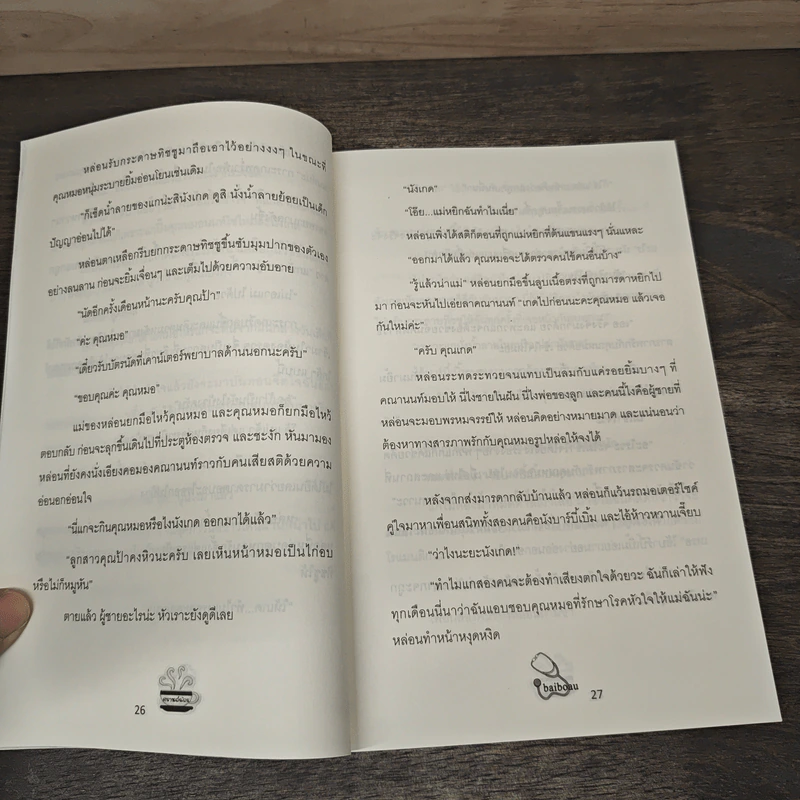 หล่อนรับกระดาษทิชชูมาถือเอาไว้อย่างงงๆ ในขณะที่
คุณหมอหนุ่มระบายยิ้มอ่อนโยนเช่นเดิม
“ก็เช็ดน้ำลายของแกน่ะสินังเกด ดูสิ นั่งน้ำลายย้อยเป็นเด็ก
ปัญญาอ่อนไปได้”
หล่อนตาเหลือกรีบยกกระดาษทิชชูขึ้นซับมุมปากของตัวเอง
อย่างลนลาน ก่อนจะยิ้มเจื่อนๆ และเต็มไปด้วยความอับอาย
“นัดอีกครั้งเดือนหน้านะครับคุณป้า”
“ค่ะ คุณหมอ”
“เดี๋ยวรับบัตรนัดที่เคาน์เตอร์พยาบาลด้านนอกนะครับ”
“ขอบคุณค่ะ คุณหมอ”
แม่ของหล่อนยกมือไหว้คุณหมอ และคุณหมอก็ยกมือไหว้
ตอบกลับ ก่อนจะลุกขึ้นเดินไปที่ประตูห้องตรวจ และชะงัก หันมามอง
หล่อนที่ยังคงนั่งเอียงคอมองคณานนท์ราวกับคนเสียสติด้วยความ
อ่อนอกอ่อนใจ
“นี่แกจะกินคุณหมอหรือไงนังเกด ออกมาได้แล้ว”
“ลูกสาวคุณป้าคงหิวนะครับ เลยเห็นหน้าหมอเป็นไก่อบ
หรือไม่ก็หมูหัน”
ตายแล้ว ผู้ชายอะไรน่ะ หัวเราะยังดูดีเลย
26
“นังเกด”
“โอ๊ย...แม่หยิกฉันทำไมเนี่ย”
หล่อนเพิ่งได้สติก็ตอนที่ถูกแม่หยิกที่ต้นแขนแรงๆ นั่นแหละ
“ออกมาได้แล้ว คุณหมอจะได้ตรวจคนไข้คนอื่นบ้าง”
“รู้แล้วน่าแม่” หล่อนยกมือขึ้นลูบเนื้อตรงที่ถูกมารดาหยิกไป
มา ก่อนจะหันไปเอ่ยลาคณานนท์ “เกดไปก่อนนะคะคุณหมอ แล้วเจอ
กันใหม่ค่ะ”
“ครับ คุณเกด”
หล่อนระทดระทวยจนแทบเป็นลมกับแค่รอยยิ้มบางๆ ที่
คณานนท์มอบให้ นี่ไงชายในฝัน นี่ไงพ่อของลูก และคนนี้ไงคือผู้ชายที่
หล่อนจะมอบพรหมจรรย์ให้ หล่อนคิดอย่างหมายมาด และแน่นอนว่า
ต้องหาทางสารภาพรักกับคุณหมอรูปหล่อให้จงได้
หลังจากส่งมารดากลับบ้านแล้ว หล่อนก็แว้นรถมอเตอร์ไซค์
คู่ใจมาหาเพื่อนสนิททั้งสองคนคือนังบาร์บี้เบิ้ม และไอ้ห้าวหวานเจี๊ยบ
“ว่าไงนะยะนังเกด!”
“ทำไมแกสองคนจะต้องทำเสียงตกใจด้วยวะ ฉันก็เล่าให้ฟัง
ทุกเดือนนี่นาว่าฉันแอบชอบคุณหมอที่รักษาโรคหัวใจให้แม่ฉันน่ะ”
หล่อนทำหน้าหงุดหงิด
baiboau
27